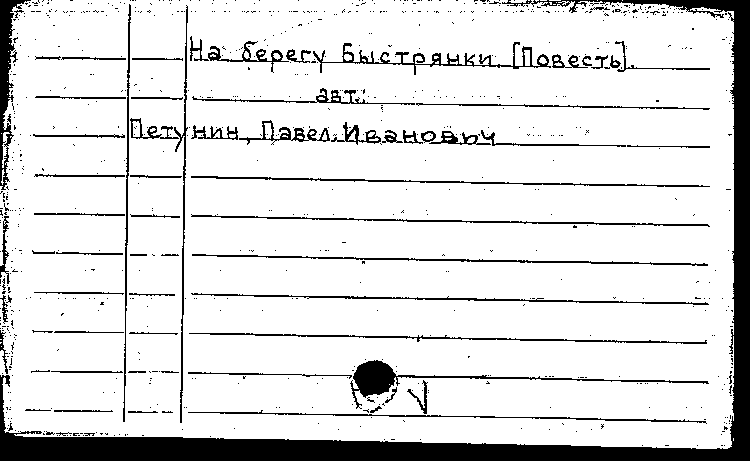 На берегу Быстрянки. [Повесть].
авт.:
Петунин, Павел Иванович